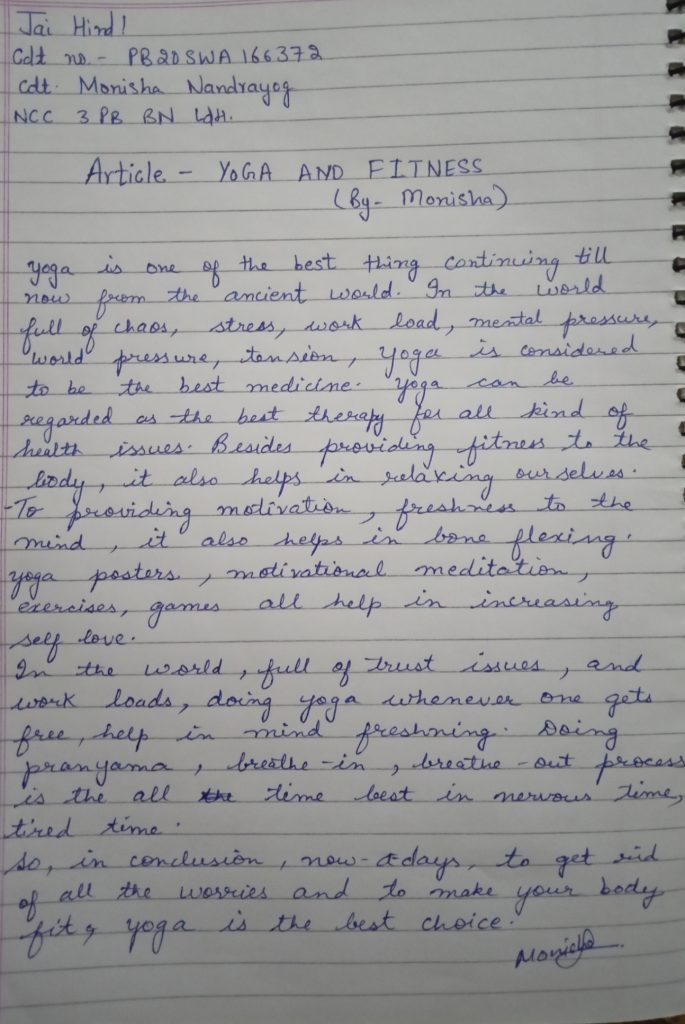 Jai Hind!
Cdt no. - PB20SWA166372
Cdt. Monisha Nandrayog
NCC 3 PB BN Ldh.
Article - YOGA AND FITNESS
(By- Monisha)
Yoga is one of the best thing continuing till
now from the ancient world. In the world
full of chaos, stress, work load, mental pressure,
world pressure, tension, yoga is considered
to be the best medicine. Yoga can be
regarded as the best therapy for all kind of
health issues. Besides providing fitness to the
body, it also helps in relaxing ourselves.
-To providing motivation, freshness to the
mind, it also helps in bone flexing.
yoga posters, motivational meditation,
exercises, games all help in increasing
self love.
In the world, full of trust issues, and
work loads, doing yoga whenever one gets
free, help in mind freshning. Doing
pranyama, breathe-in, breathe-out process
is the all the time best in nervous time,
tired time.
So, in conclusion, now-a-days, to get rid
of all the worries and to make your body
fit, yoga is the best choice.
Monisha